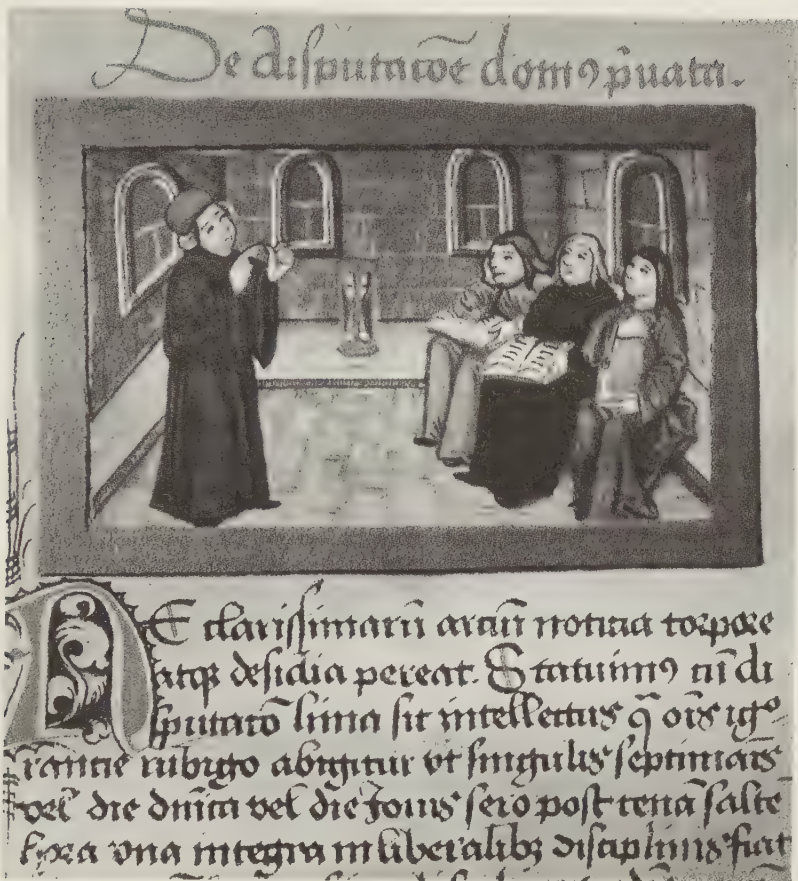 De disputacōe domꝰ p̄uata.
NE clarissimarū arciū noticia torpore
atqꝫ desidia pereat. Statuimꝰ cū di
sputatō lima sit intellectus q̄ oīs igᵒ⸗
rantie rubigo abigitur vt singulis septimaīs
vel die dn̄ica vel die Jouis sero post cenā salte
hora vna integra in liberalibꝫ disciplinis fiat